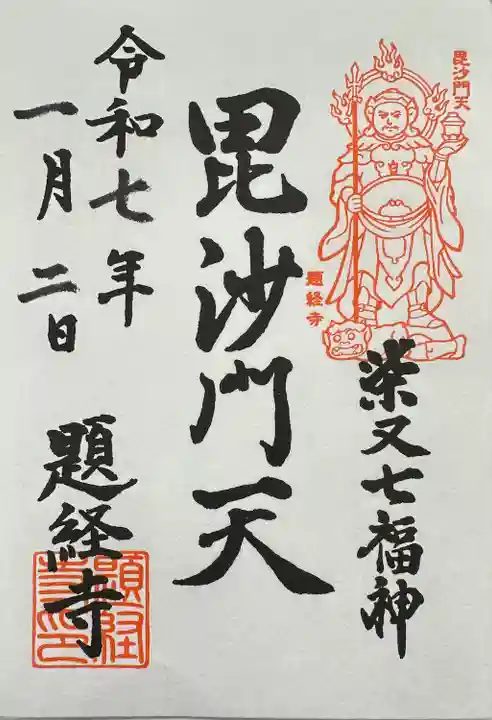 毘沙門天
題経寺
柴又七福神
毘沙門天
令和七年
一月二日
題経寺
題経寺印